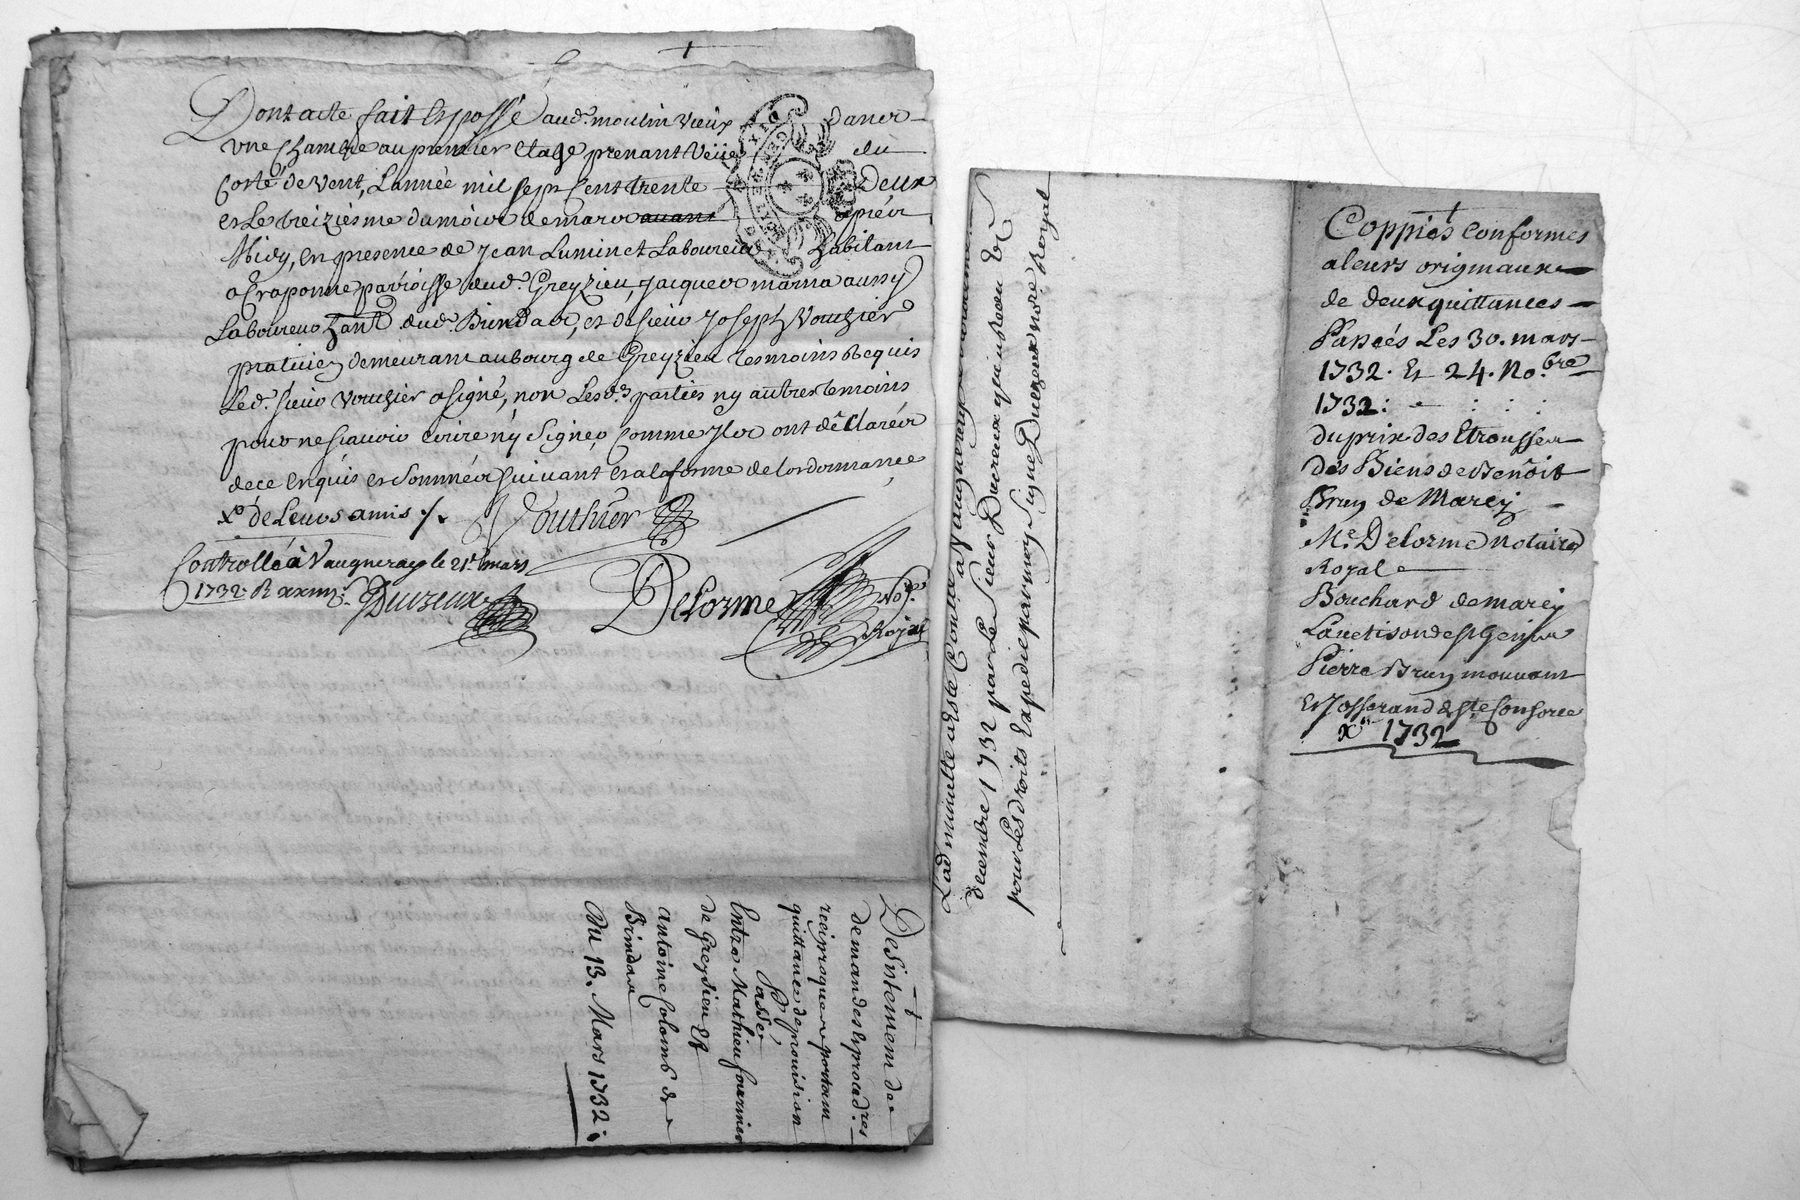 Dont acte fait et passé aud. moulin vieux dans
une chambre au premier etage prenant veüe du
Costé de vent, L'année mil sept cent trente Deux
et Le treizieme du mois de mars avant apres
Midy, en presence de Jean Laboureur habitant
a Craponne parroisse dud. Greyzieu, Jacques marna aussy
Laboureur hant dud. Brindas, et de sieur Joseph Vouthier
praticien demeurant au bourg de Greyzieu temoins requis
Led. sieur Vouthier a signé, non Lesd. parties ny autres temoins
pour ne sçavoir ecrire ny signer Comme ils ont declarés
de ce enquis et Sommés suivant et a la forme de l'ordonnance
de Leurs amis /. Vouthier
Controllé à Vaugneray le 21e mars
1732 R Ducreux
Delorme Nore
Royal
Desistement de
demandes et proced.res
reciproques portant
quittance de provision
Passé
Entre Mathieu fournier
de Greysieu Et
antoine Coloms de
Brindas
Du 13. Mars 1732.
Lad minutte a esté Controllée a Vaugneray
decembre 1732 par Le Sieur Ducreux qui a Receu
pour Les droits Expedie par moy Signé Ducreux nore Royal
Coppies conformes
a leurs originaux
de deux quittances
Passés Les 30. mars
1732. Et 24. No.bre
1732:
du prix des Etrousses
des Biens de Benoit
Brun de Marcy
Me. Delorme notaire
Royal
Bouchard de marcy
de st Genis
Pierre Brun mouvant
Et Josserand de Ste Consorce
1732